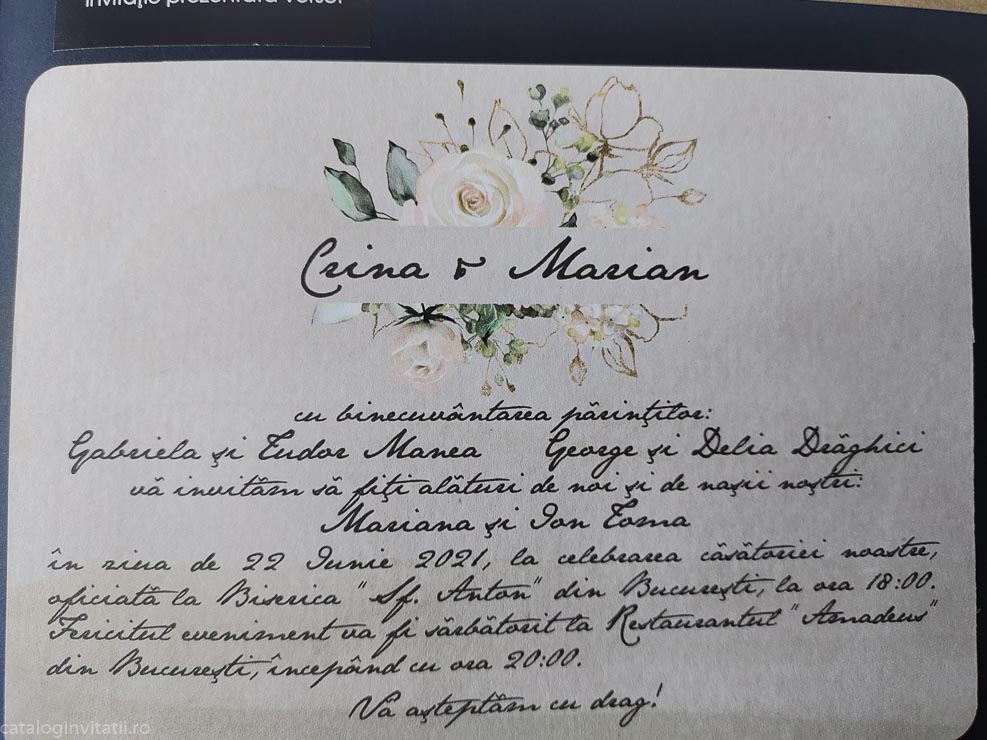 invitație prezentată verso!
Crina & Marian
cu binecuvântarea părinților:
Gabriela și Tudor Manea George și Delia Drăghici
vă invităm să fiți alături de noi și de nașii noștri:
Mariana și Ion Toma
în ziua de 22 Iunie 2021, la celebrarea căsătoriei noastre,
oficiată la Biserica "Sf. Anton" din București, la ora 18:00.
Fericitul eveniment va fi sărbătorit la Restaurantul "Amadeus"
din București, începând cu ora 20:00.
Va așteptăm cu drag!
cataloginvitatii.ro